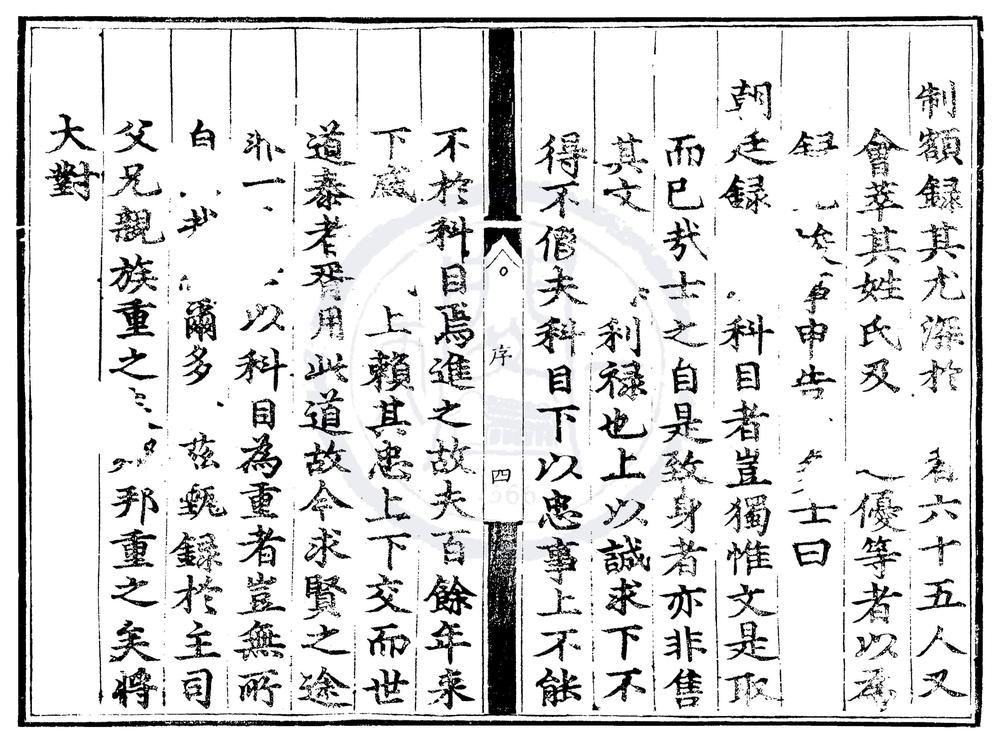 制額録其尤深於 六十五人又
會萃其姓氏及 優等者以為
録 事申告 士曰
朝廷録 科目者豈獨惟文是取
而已㢤士之自是致身者亦非售
其文 利禄也上以誠求下不
得不偹夫科目下以忠事上不能
序
四
不於科目焉進之故夫百餘年来
下 上賴其忠上下交而世
道泰者胥用此道故今求賢之途
一 以科目為重者豈無所
自 爾多 兹甄録於主司
父兄親族重之 邦重之矣將
大對